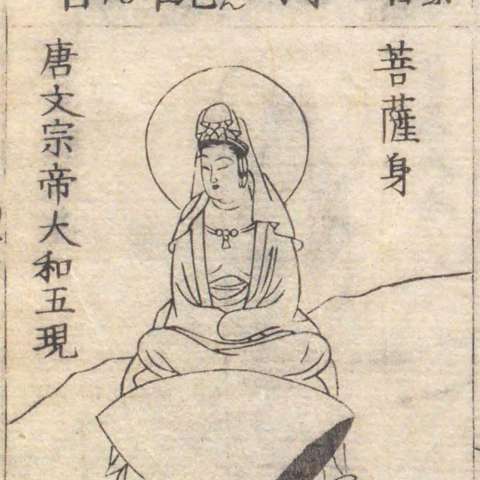 菩薩身
唐文宗帝大和五現